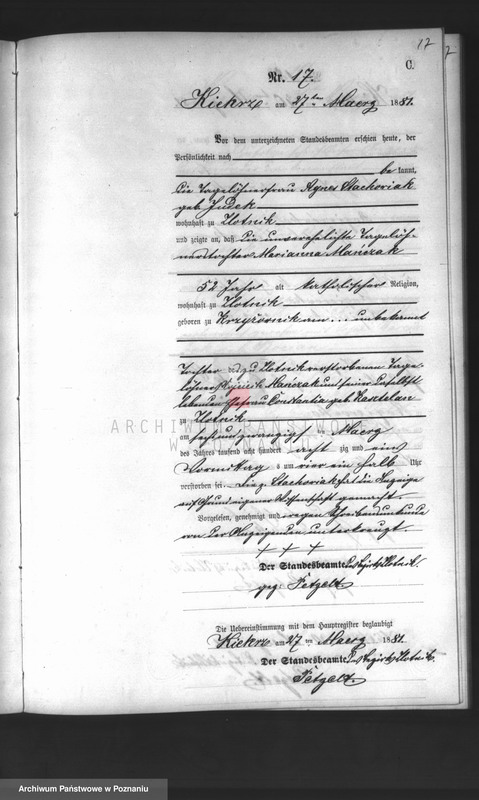 17
C.
Nr. 17.
Kiekrz am 27ten Maerz 1881.
Vor dem unterzeichneten Standesbeamten erschien heute, der
Persönlichkeit nach
be kannt,
die Tagelöhnerfrau Agnes Stachowiak
geb. Judek
wohnhaft zu Zlotnik
und zeigte an, daß die unverehelichte Tagelöh-
nerstochter Marianna Mańczak
52 Jahr alt katholischer Religion,
wohnhaft zu Zlotnik
geboren zu Krzyżownik am ... unbekannt
Tochter des zu Zlotnik verstorbenen Tage-
löhners Mańczak und seiner daselbst
lebenden Ehefrau Constantia geb. Kasztelan
zu Zlotnik
am sechsundzwanzigsten Maerz
des Jahres tausend acht hundert acht zig und ein
Vormittag s um vier ein halb Uhr
verstorben sei. Die p. Stachowiak hat die Anzeige
auf Grund eigener Wissenschaft gemacht.
Vorgelesen, genehmigt und wegen Schreibensunkunde
von der Anzeigenden unterkreuzt.
+ + +
Der Standesbeamte des Bezirks Zlotnik.
gez. Petzelt
Die Uebereinstimmung mit dem Hauptregister beglaubigt
Kiekrz am 27 ten Maerz 1881.
Der Standesbeamte des Bezirks Zlotnik.
Petzelt
ARCHIWUM PAŃSTWOWE
W POZNANIU
Archiwum Państwowe w Poznaniu